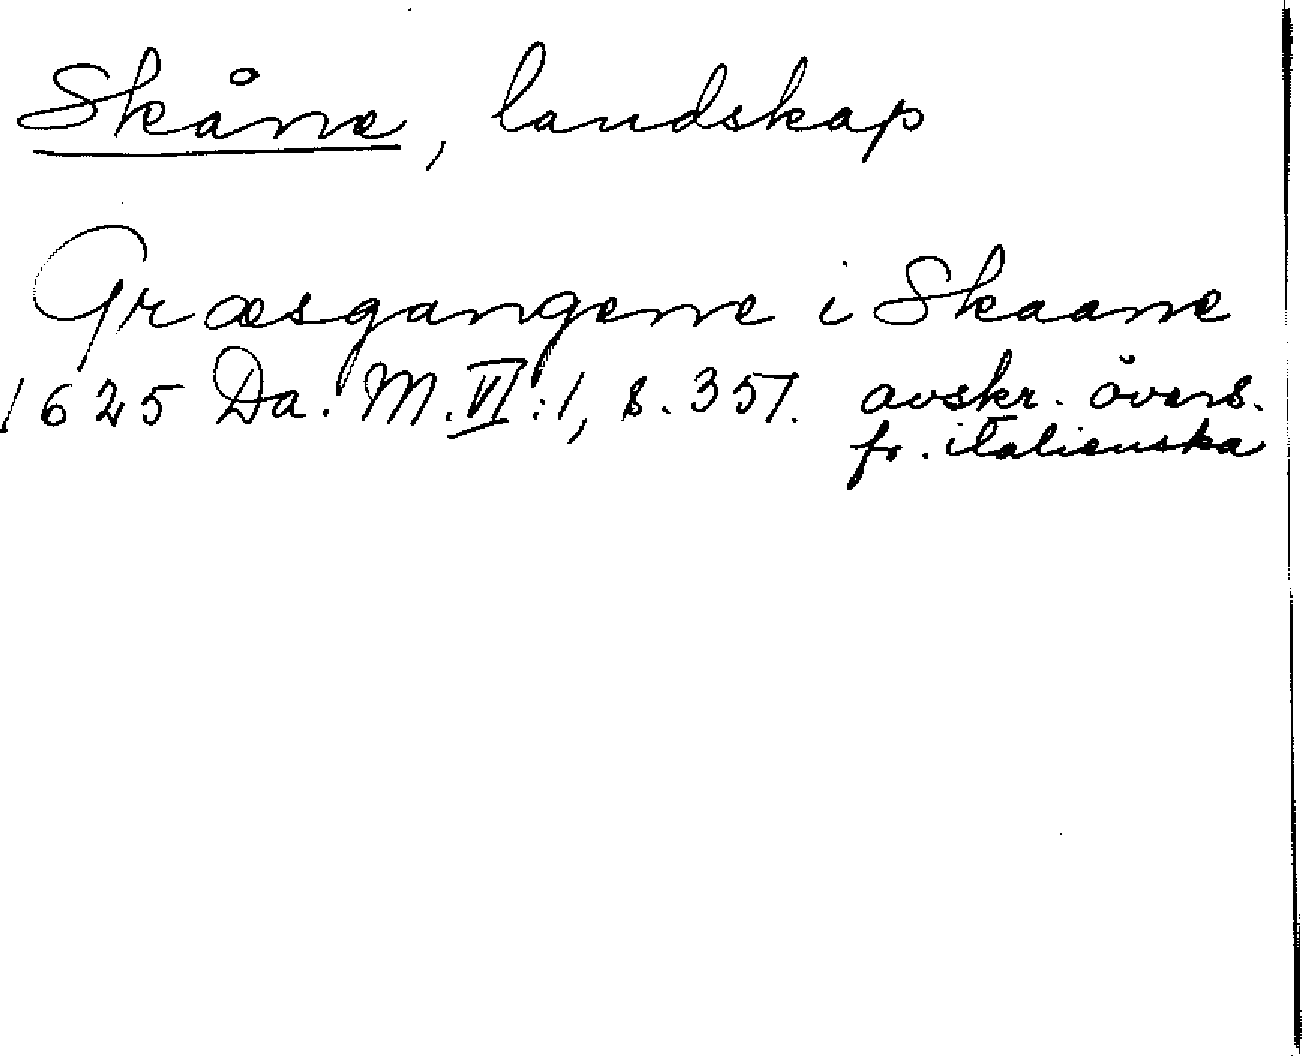 Skåne, landskap
Græsgangene i Skaane
1625 Da. M. VI:1, s. 357. avskr. övers.
fr. italienska